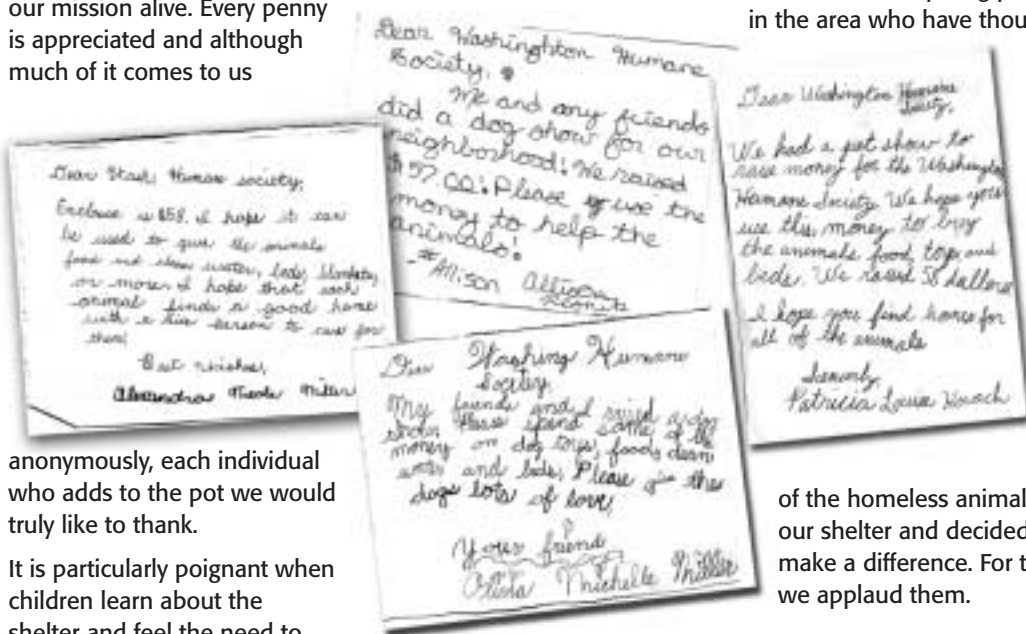 our mission alive. Every penny
is appreciated and although
much of it comes to us
anonymously, each individual
who adds to the pot we would
truly like to thank.
It is particularly poignant when
children learn about the
shelter and feel the need to
Dear Wash. Humane society,
Enclose is $58. I hope it can
be used to give the animals
food and clean water, beds, blankets,
or more. I hope that each
animal finds a good home
with a person to care for
them!
Best wishes,
Alexandra Nicole Miller
Dear Washinghton Humane
Society,
Me and my friends
did a dog show for our
neighborhood! We raised
$57.00! Please use the
money to help the
animals!
Allison
Dear Washing Humane
Society,
My friends and I raised a dog
show. Please spend some of the
money on dog toys, food, clean
water and beds. Please give the
dogs lots of love,
Your friend
Michelle Miller
Dear Washington Humane
Society,
We had a pet show to
raise money for the Washington
Humane Society. We hope you
use this money to buy
the animals food, toys and
beds. We raised 58 dollars
I hope you find homes for
all of the animals
Sincerely,
Patricia Louise
in the area who have thou
of the homeless animal
our shelter and decided
make a difference. For t
we applaud them.